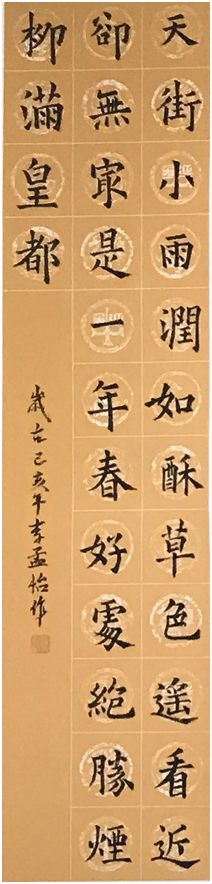 天街小雨潤如酥草色遥看近
卻無㝡是一年春好處絶勝煙
柳滿皇都
歲在己亥年李孟怡作